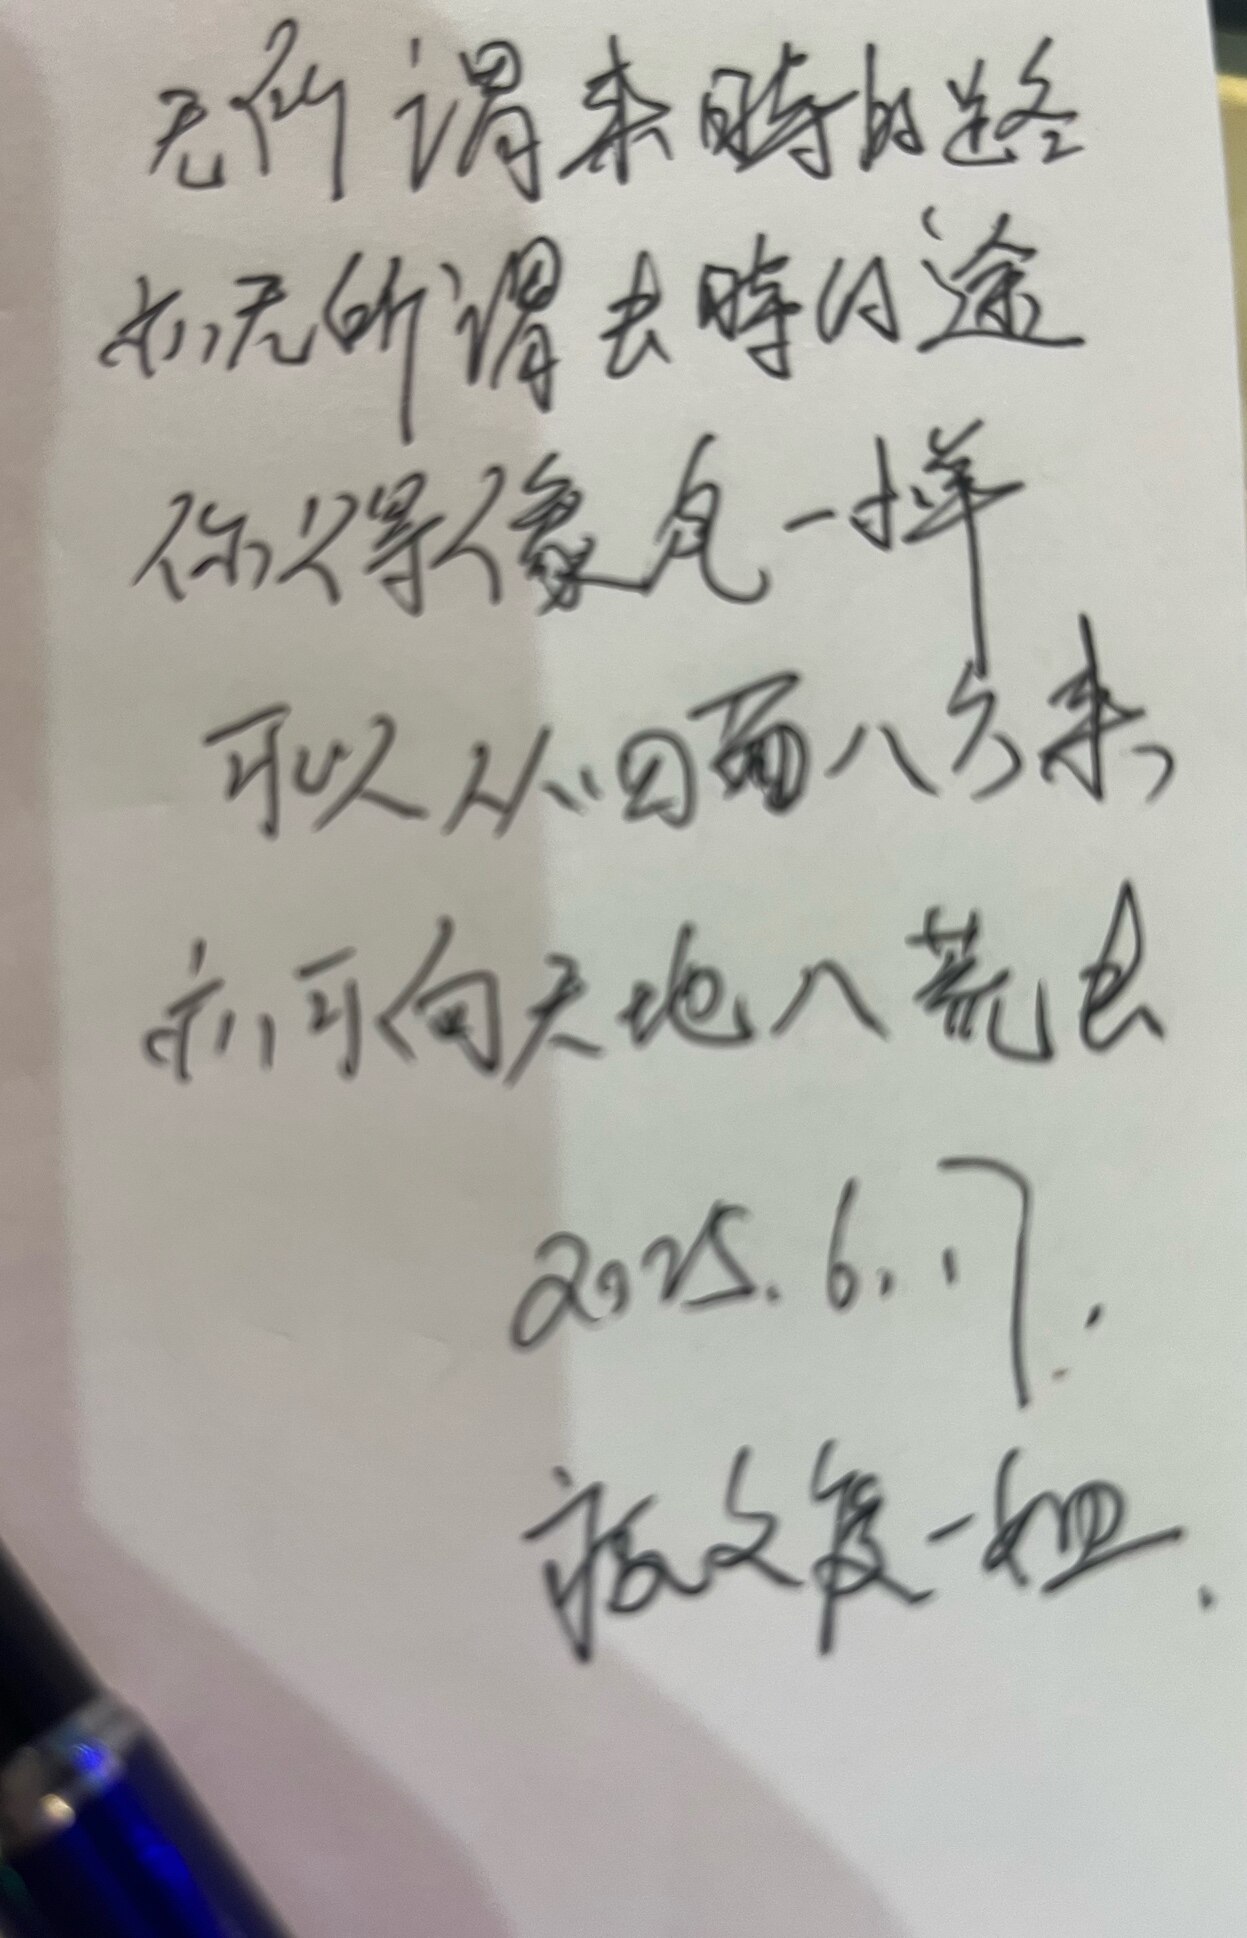 无所谓来時的路
亦无所谓去時的途
你得像风一样
可以从四面八方来
亦可向天地八荒去
2025.6.17.